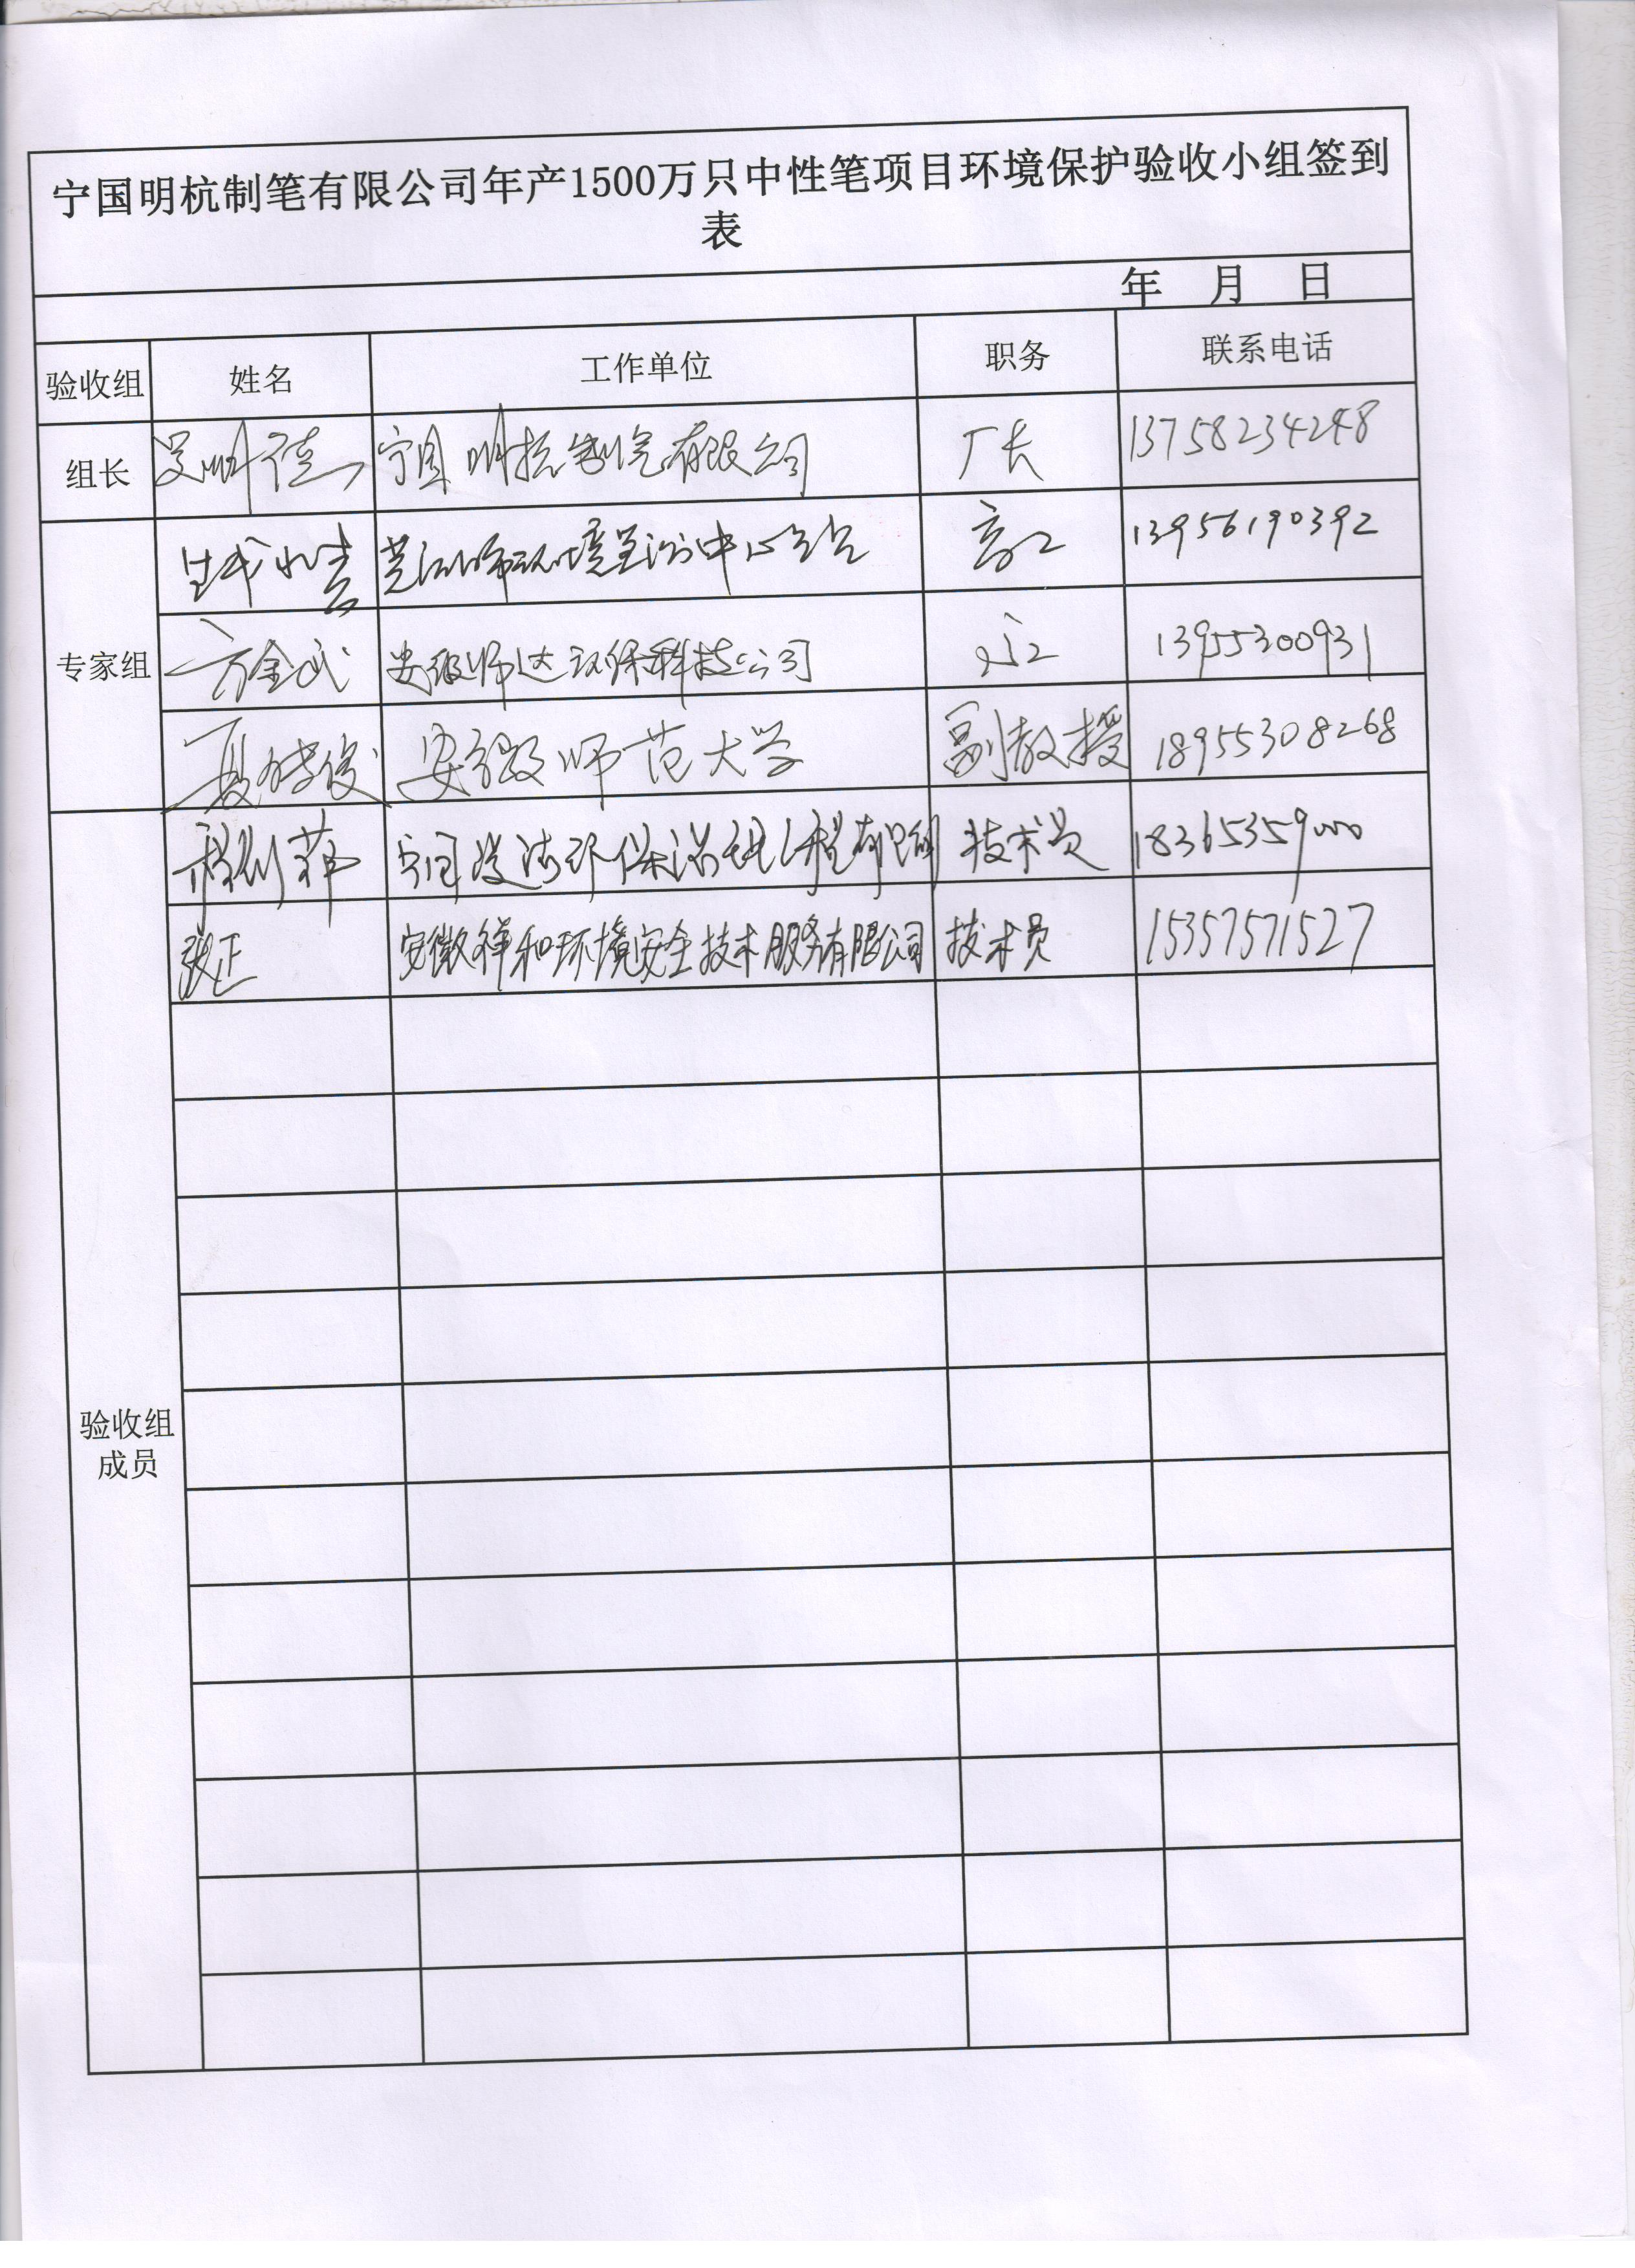 宁国明杭制笔有限公司年产1500万只中性笔项目环境保护验收小组签到
表
年 月 日
验收组 姓名 工作单位 职务 联系电话
组长 明德 宁国明杭制笔有限公司 厂长 13758234248
专家组
芜湖市环境监测中心站 高工 13956190392
方金武 安徽师达环保科技公司 13955300931
夏 俊 安徽师范大学 副教授 18955308268
验收组
成员
程 菲 宁国 环保 工程有限公司 技术员 18365359000
张正 安徽祥和环境安全技术服务有限公司 技术员 15357571527